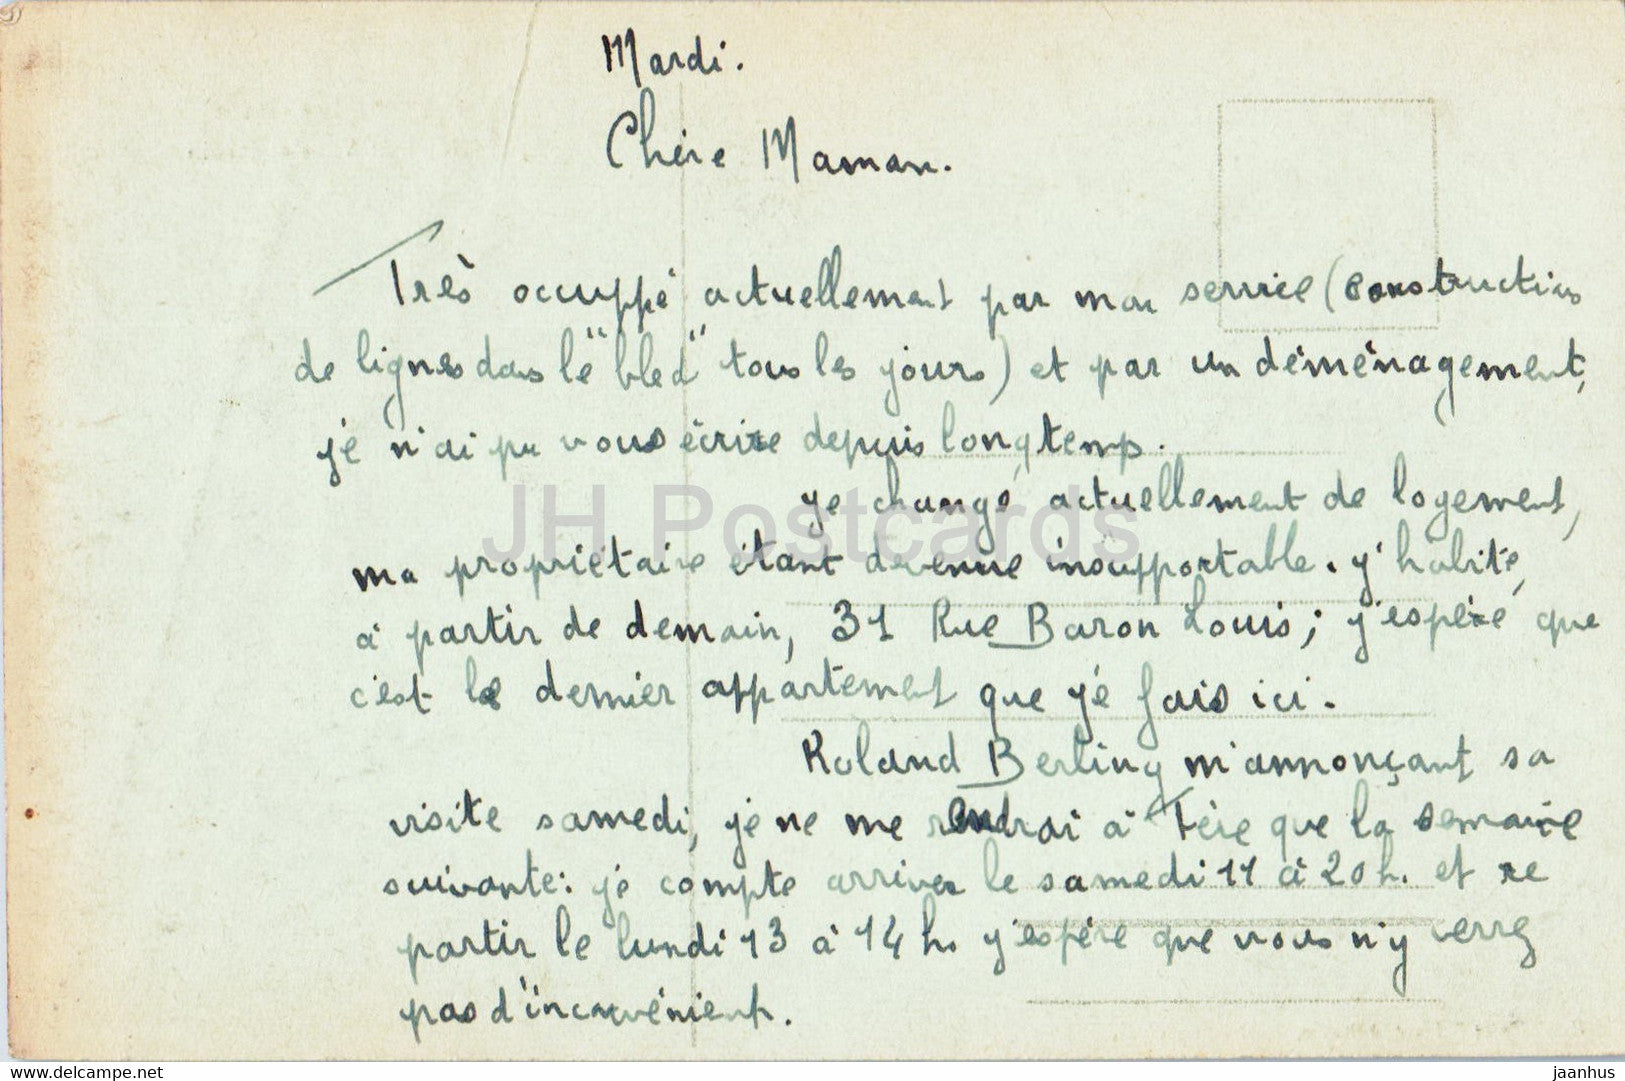 Mardi.
Chère Maman.
Très occuppé actuellement par mon service (construction
de lignes dans le "bled" tous les jours) et par un déménagement,
je n'ai pu vous écrire depuis longtemps.
Je change actuellement de logement,
ma propriétaire étant devenue insupportable. J'habite,
à partir de demain, 31 Rue Baron Louis; j'espère que
c'est le dernier appartement que je fais ici.
Roland Berling m'annonçant sa
visite samedi, je ne me rendrai à Fère que la semaine
suivante: je compte arriver le samedi 11 à 20h. et re
partir le lundi 13 à 14 h. J'espère que vous n'y verrez
pas d'inconvénient.
JH Postcards
delcampe.net
jaanhus